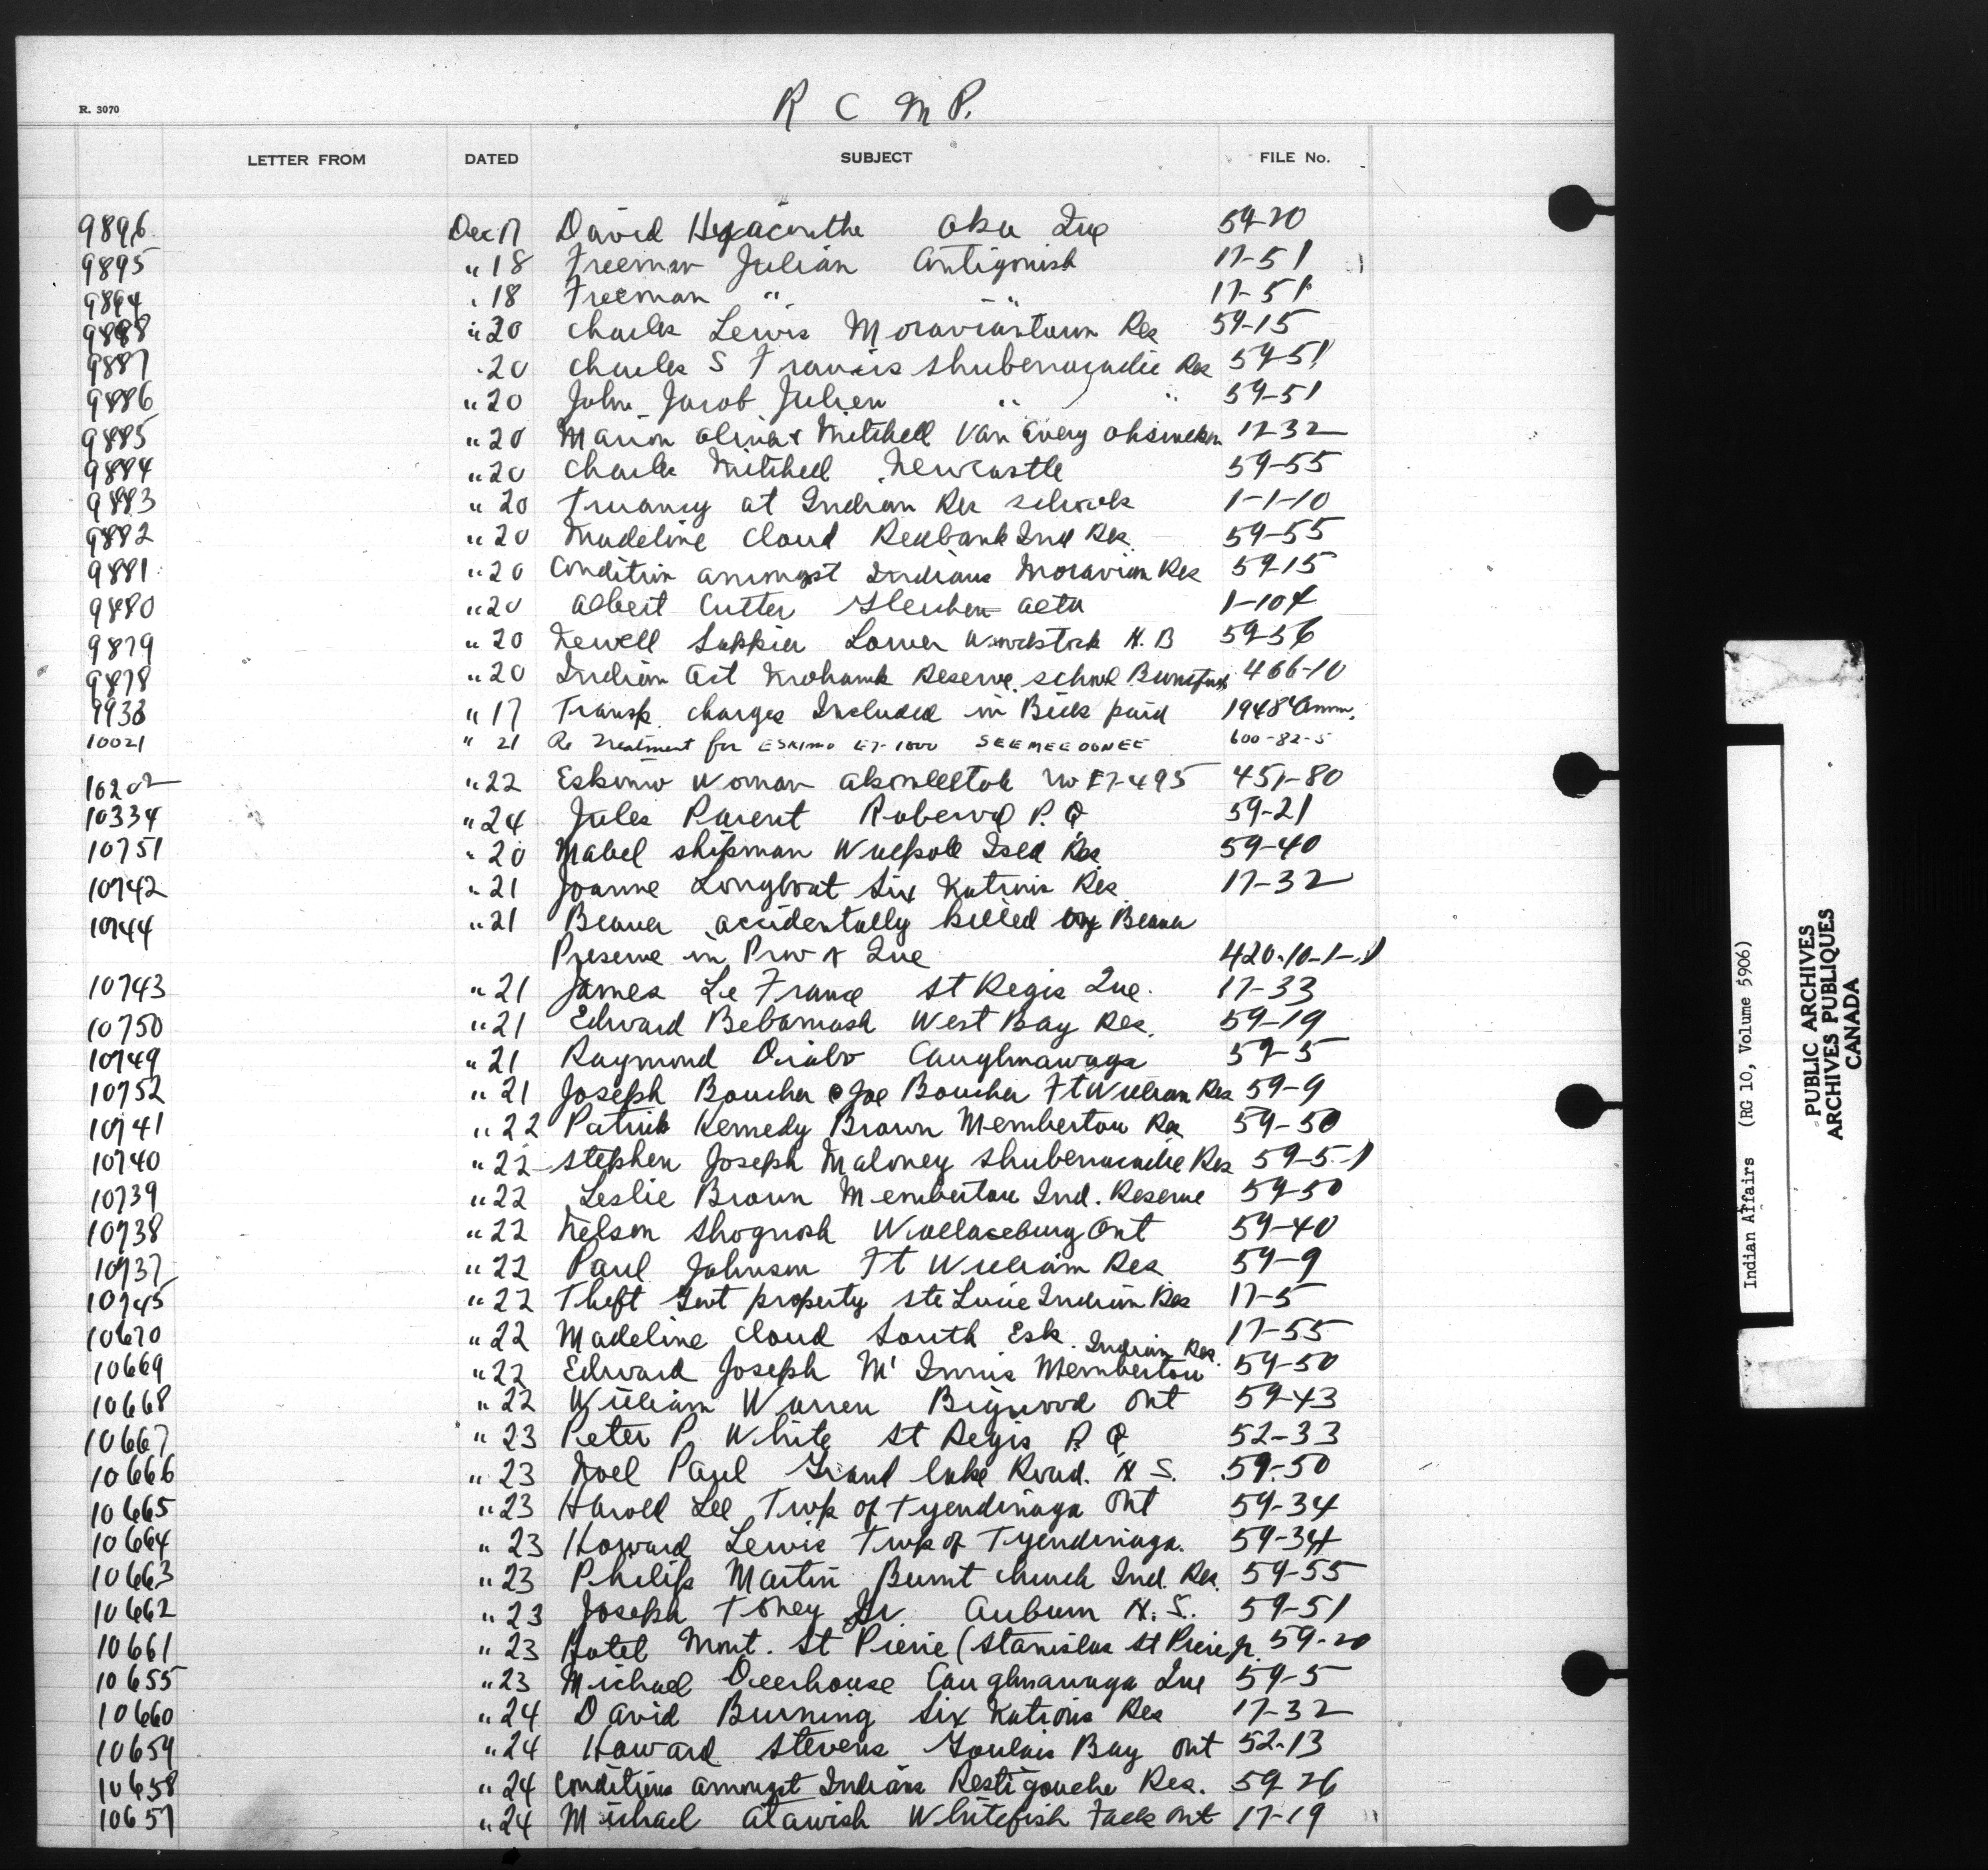 R C M P.
R. 3070
LETTER FROM DATED SUBJECT FILE No.
9896 Dec 17 David Hyacinthe Oka Que 59-20
9895 " 18 Freeman Julian Antigonish 17-51
9894 " 18 Freeman " " 17-51
9888 " 20 Charles Lewis Moraviantown Res 59-15
9887 " 20 Charles S Francis Shubenacadie Res 59-51
9886 " 20 John Jacob Julien " " 59-51
9885 " 20 Marion Mitchell Van Every Ohsweken 17-32
9884 " 20 Charles Mitchell Newcastle 59-55
9883 " 20 Truancy at Indian Res schools 1-1-10
9882 " 20 Madeline Cloud Redbank Ind Res. 59-55
9881 " 20 Condition amongst Indians Moravian Res 59-15
9880 " 20 Albert Cutter Gleichen Alta 1-104
9879 " 20 Newell Sappier Lower Woodstock N.B 59-56
9878 " 20 Indian Act Mohawk Reserve school Brantford 466-10
9938 " 17 Transp. charges Included in Bills paid 1948
10021 " 21 Re Treatment for ESKIMO E7-1000 SEEMEEOONEE 600-82-5
10202 " 22 Eskimo Woman No E7-495 451-80
10334 " 24 Jules Parent Roberval P.Q 59-21
10751 " 20 Mabel Shipman Walpole Isld Res. 59-40
10742 " 21 Joanne Longboat Six Nations Res. 17-32
10744 " 21 Beaver accidentally killed Beaver
Preserve in Prov of Que 420-10-1-1
10743 " 21 James Le France St Regis Que. 17-33
10750 " 21 Edward Bebamash West Bay Res. 59-19
10749 " 21 Raymond Diabo Caughnawaga 59-5
10752 " 21 Joseph Boucher @ Joe Boucher Ft William Res 59-9
10741 " 22 Patrick Kennedy Brown Membertou Res 59-50
10740 " 22 Stephen Joseph Maloney Shubenacadie Res 59-5-1
10739 " 22 Leslie Brown Membertou Ind. Reserve 59-50
10738 " 22 Nelson Shognosh Wallaceburg Ont 59-40
10737 " 22 Paul Johnson Ft William Res 59-9
10745 " 22 Theft Govt property Ste Lucie Indian Res 17-5
10670 " 22 Madeline Cloud South Esk. 17-55
Indian Res.
10669 " 22 Edward Joseph Mc Innis Membertou 59-50
10668 " 22 William Warren Bigwood Ont 59-43
10667 " 23 Peter P. White St Regis P.Q 52-33
10666 " 23 Noel Paul Grand Lake Road. N S. 59-50
10665 " 23 Harold Lee Twp of Tyendinaga Ont 59-34
10664 " 23 Howard Lewis Twp of Tyendinaga. 59-34
10663 " 23 Philip Martin Burnt Church Ind. Res. 59-55
10662 " 23 Joseph Toney Jr Auburn N.S. 59-51
10661 " 23 Hotel Mont. St Pierre (Stanislas St Pierre jr. 59-20
10655 " 23 Michael Deerhouse Caughnawaga Que 59-5
10660 " 24 David Burning Six Nations Res 17-32
10659 " 24 Howard Stevens Goulais Bay Ont 52-13
10658 " 24 Conditions amongst Indians Restigouche Res. 59-26
10657 " 24 Michael Atawish Whitefish Falls Ont 17-19
Indian Affairs (RG 10, Volume 5906)
PUBLIC ARCHIVES
ARCHIVES PUBLIQUES
CANADA